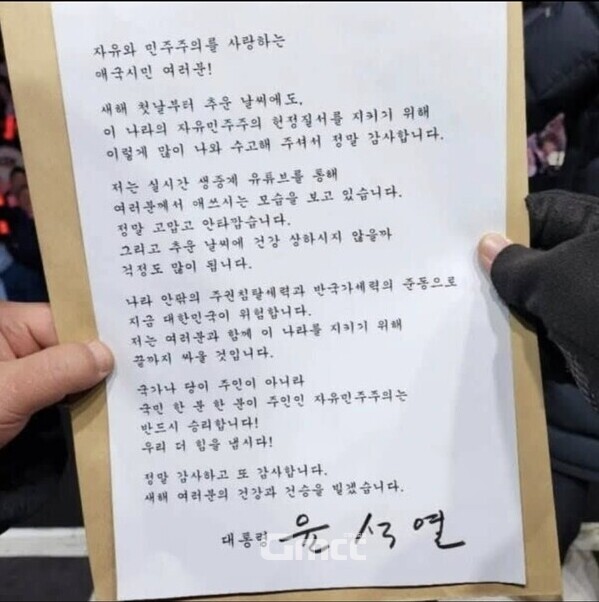 자유와 민주주의를 사랑하는
애국시민 여러분!
새해 첫날부터 추운 날씨에도,
이 나라의 자유민주주의 헌정질서를 지키기 위해
이렇게 많이 나와 수고해 주셔서 정말 감사합니다.
저는 실시간 생중계 유튜브를 통해
여러분께서 애쓰시는 모습을 보고 있습니다.
정말 고맙고 안타깝습니다.
그리고 추운 날씨에 건강 상하시지 않을까
걱정도 많이 됩니다.
나라 안팎의 주권침탈세력과 반국가세력의 준동으로
지금 대한민국이 위험합니다.
저는 여러분과 함께 이 나라를 지키기 위해
끝까지 싸울 것입니다.
국가나 당이 주인이 아니라
국민 한 분 한 분이 주인인 자유민주주의는
반드시 승리합니다!
우리 더 힘을 냅시다!
정말 감사하고 또 감사합니다.
새해 여러분의 건강과 건승을 빌겠습니다.
대통령 윤석열
GMCC